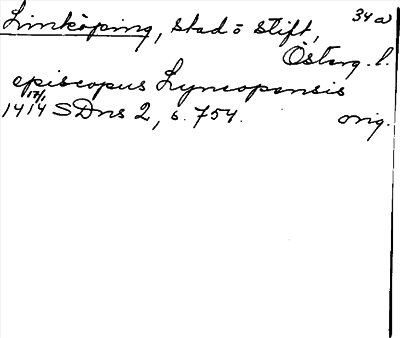 34 a)
Linköping, stad o stift,
Österg. l.
episcopus Lyncopensis
17/1
1414 SDns 2, s. 754. orig.